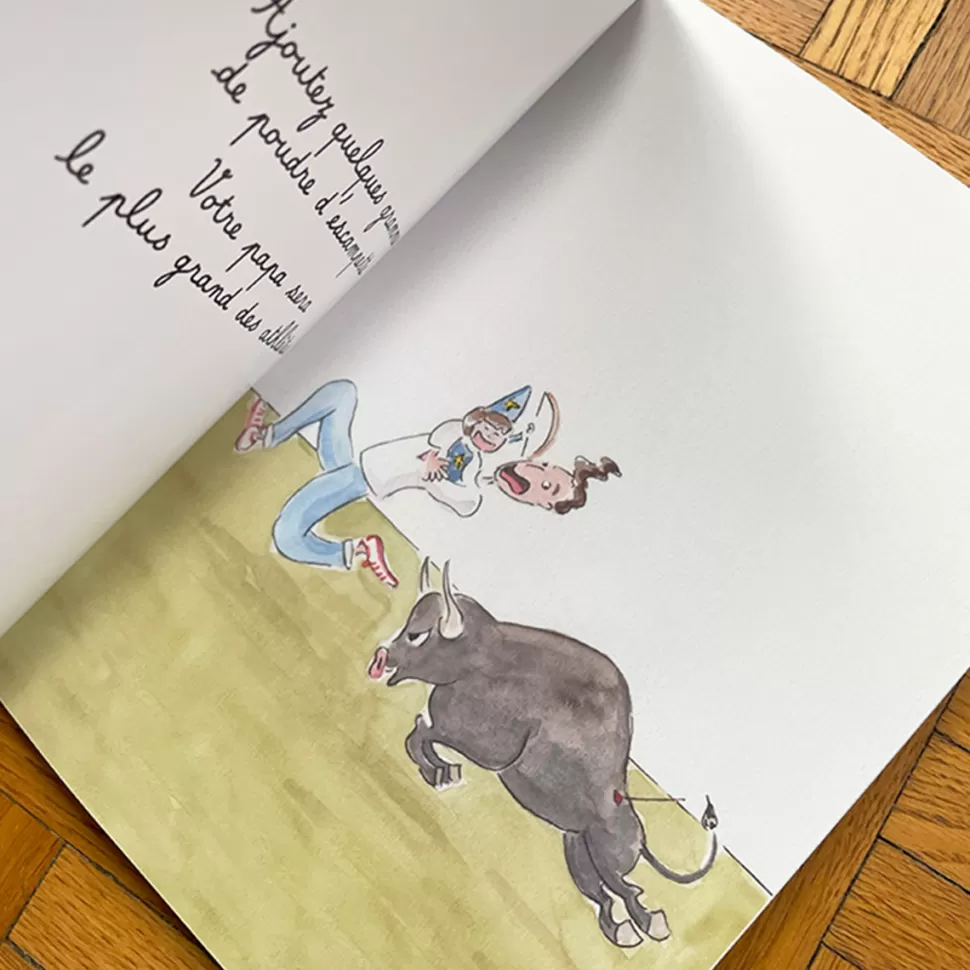 Ajoutez quelques
de poudre d'escampette
Votre papa sera
le plus grand des